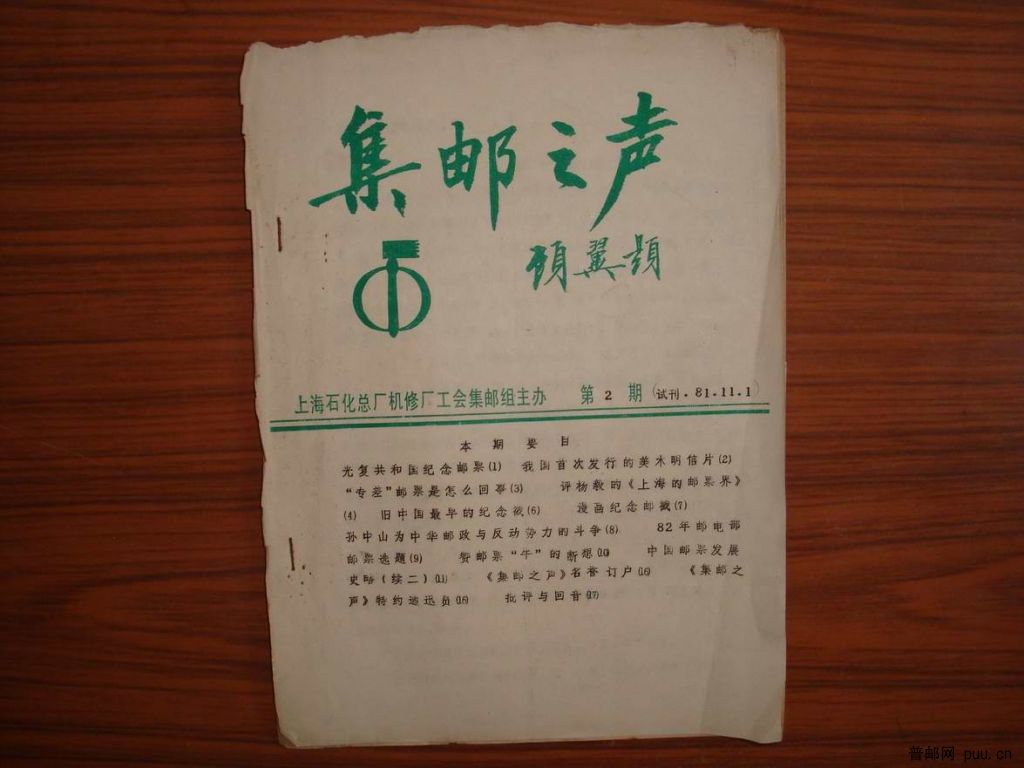 集邮之声
顾翼题
上海石化总厂机修厂工会集邮组主办 第2期(试刊·81.11.1)
本期要目
光复共和国纪念邮票(1) 我国首次发行的美术明信片(2)
“专差”邮票是怎么回事(3) 评杨教的《上海的邮票界》
(4) 旧中国最早的纪念戳(6) 漫画纪念邮戳(7)
孙中山为中华邮政与反动势力的斗争(8) 82年邮电部
邮票选题(9) 赞邮票“牛”的断想(10) 中国邮票发展
史略(续二)(11) 《集邮之声》名誉订户(16) 《集邮之
声》特约通迅员(16) 批评与回音(17)
普邮网 puu.cn